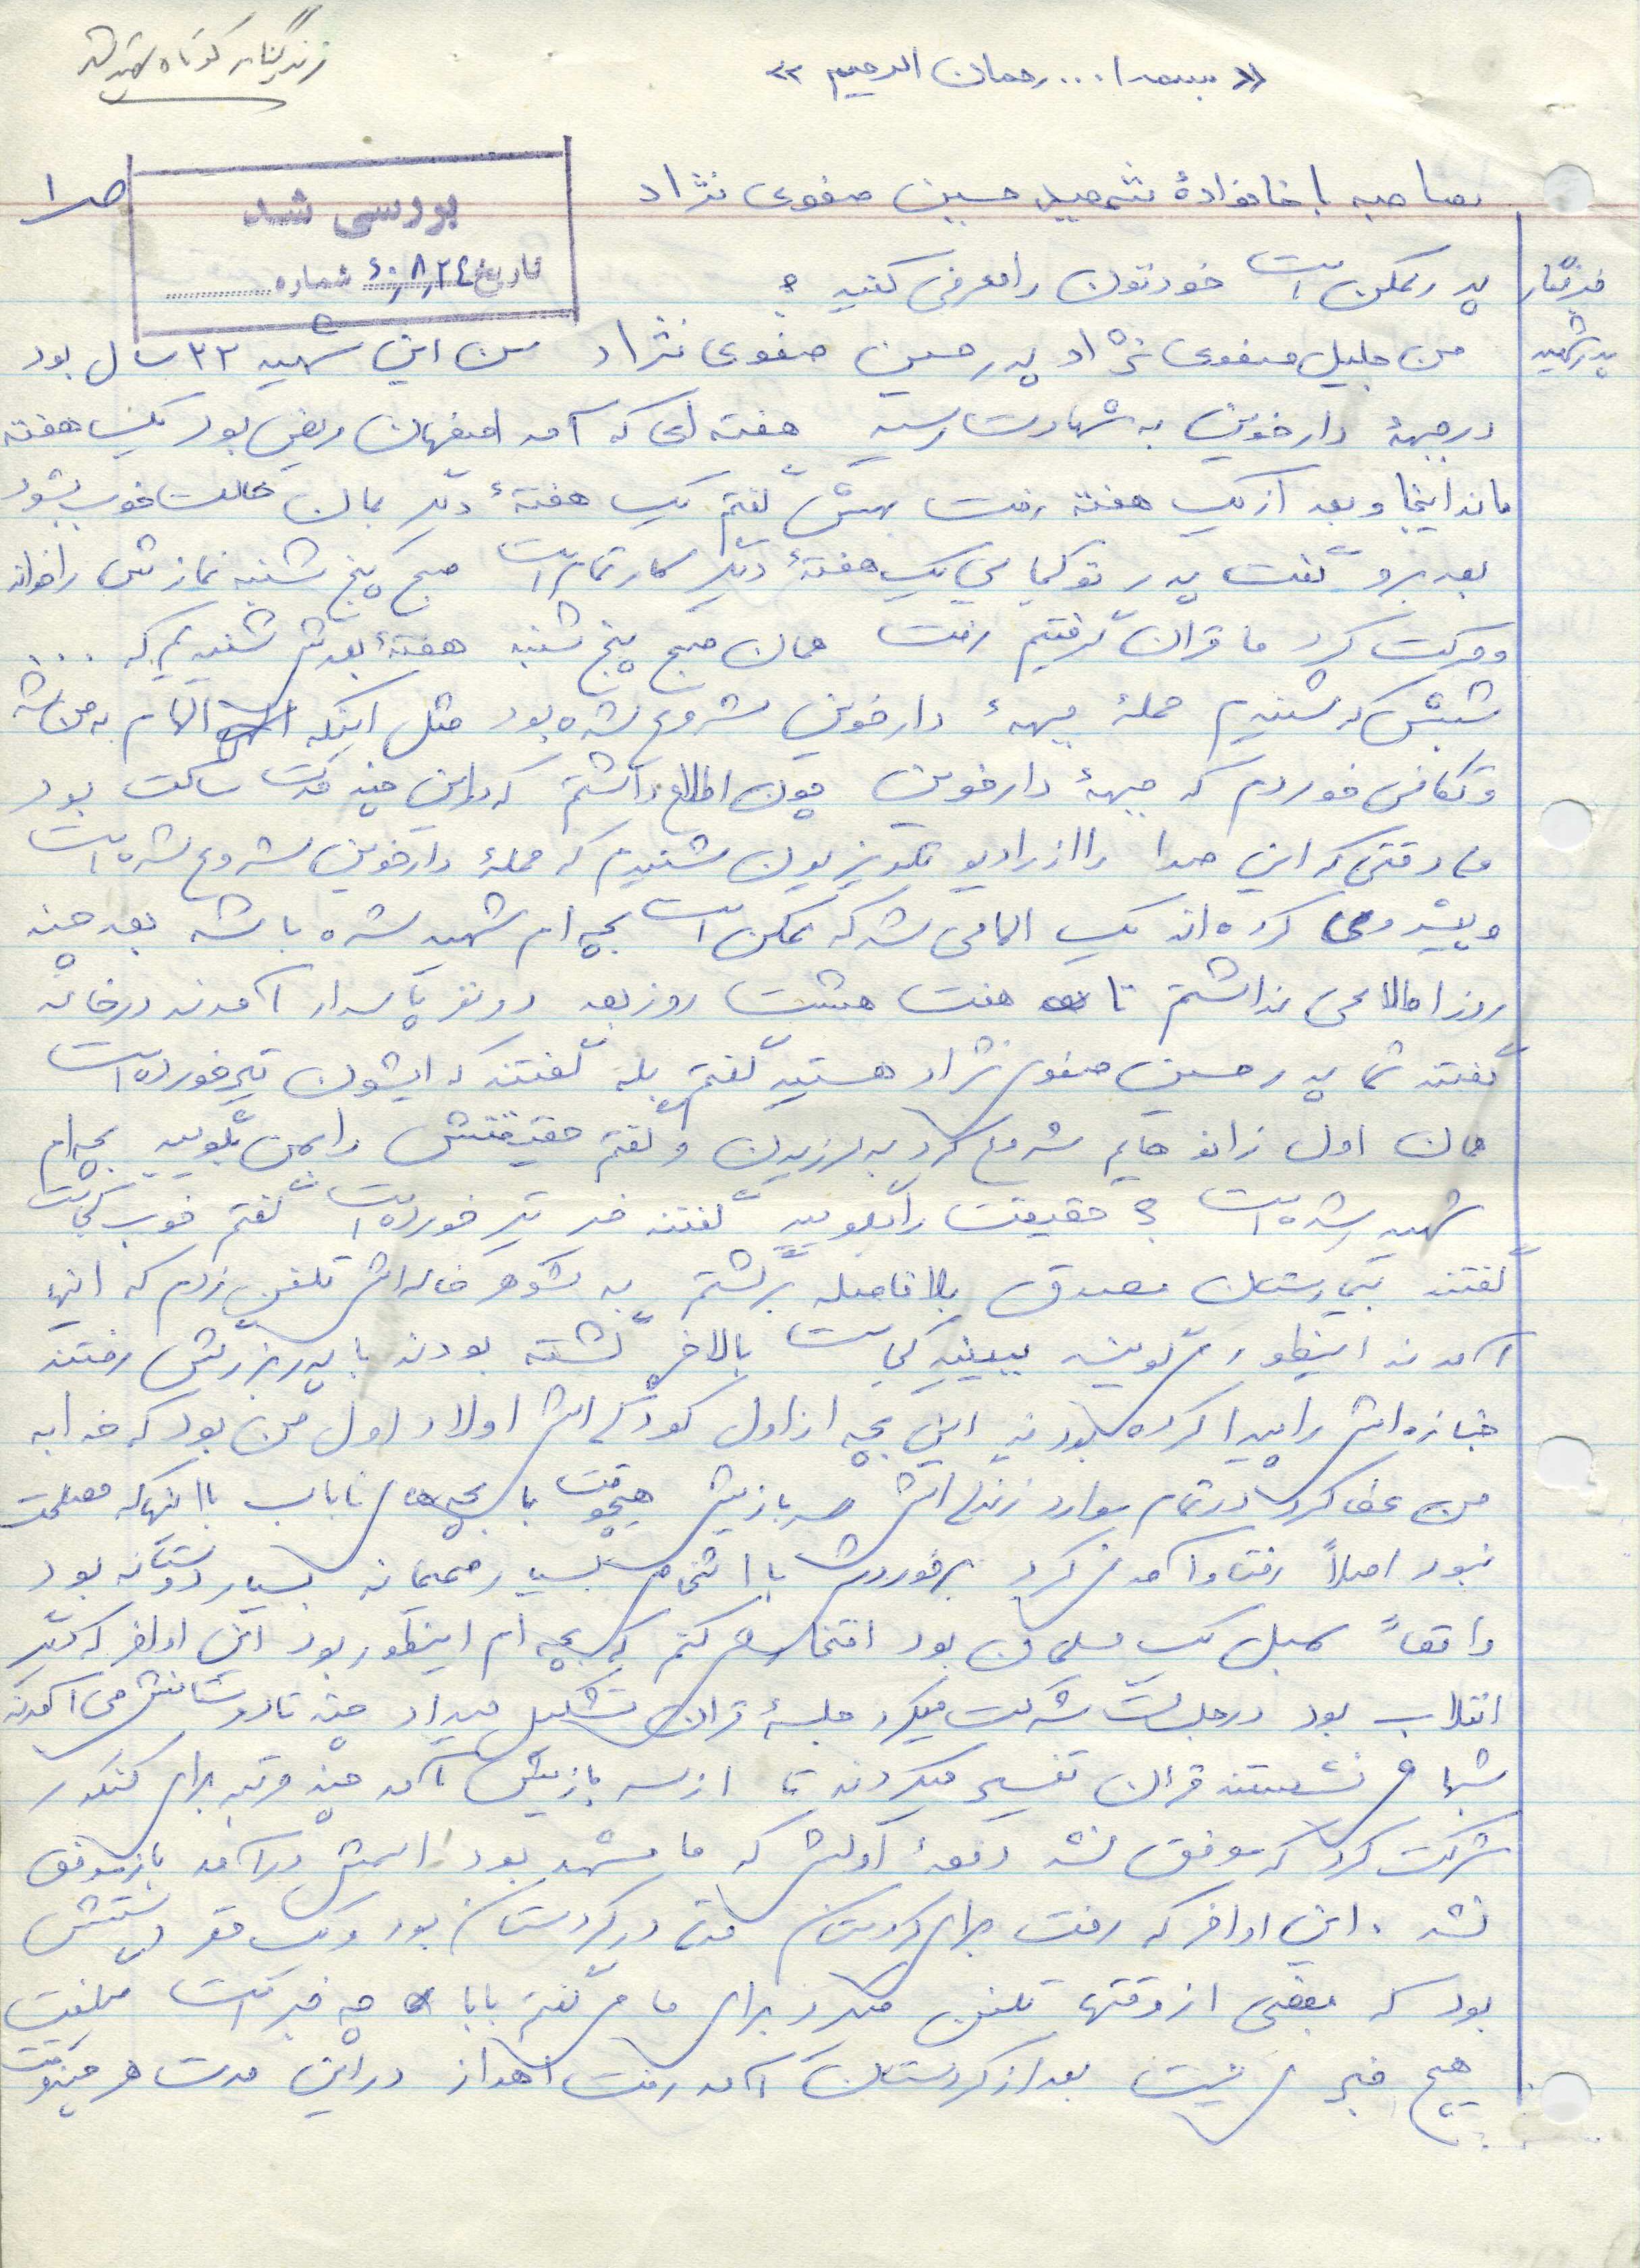 زندگینامه کوتاه شهید
« بسمه ا... رحمان الرحیم »
ص ۱
بررسی شد
تاریخ ۶۰٫۸٫۲۴ شماره
مصاحبه با خانوادهٔ شهید حسین صفوی نژاد
پدر ممکن است خودتون را معرفی کنید ؟
پدر شهید
من جلیل صفوی نژاد پدر حسین صفوی نژاد سن این شهید ۲۲ سال بود
در جبههٔ دارخوین به شهادت رسید هفته ای که آمد اصفهان مریض بود یک هفته
ماند اینجا و بعد از یک هفته رفت بهش گفتم یک هفتهٔ دیگر بمان حالت خوب بشود
بعد برو گفت پدر تو کجایی یک هفتهٔ دیگر کار تمام است صبح پنج شنبه نمازش را خواند
و حرکت کرد ما قرآن گرفتیم رفت همان صبح پنج شنبه هفتهٔ بعدش شنیدیم که ...
شبش که شنیدم حملهٔ جبههٔ دارخوین شروع شده بود مثل اینکه الهام به من شد
و تکانی خوردم که جبههٔ دارخوین چون اطلاع داشتم که در این چند مدت ساکت بود
ما وقتی که این صدا را از رادیو تلویزیون شنیدم که حملهٔ دارخوین شروع شده است
و پیشروی کرده اند یک الهامی شد که ممکن است بچه ام شهید شده باشد بعد چند
روز اطلاعی نداشتم تا هفت هشت روز بعد دو نفر پاسدار آمدند در خانه
گفتند شما پدر حسین صفوی نژاد هستید گفتم بله گفتند که ایشون تیر خورده است
همان اول زانو هایم شروع کرد به لرزیدن و گفتم حقیقتش را بمن بگویید بچه ام
شهید شده است ؟ حقیقت را بگویید گفتند خیر تیر خورده است گفتم خوب کجاست
گفتند بیمارستان مصدق بلافاصله برگشتم به شوهر خاله اش تلفن زدم که اینها
آمدند اینطور می گویند ببینید کجاست بالاخره گشته بودند با پدر بزرگش رفتند
جنازه اش را پیدا کرده بودند این بچه از اول کودکی اش اولاد اول من بود که خدا به
من عطا کرد در تمام موارد زندگی اش سربازیش هیچوقت با بچه های ناباب با اینهایی که مصلحت
نبود اصلاً رفت و آمد نمی کرد برخوردش با اشخاص بسیار صمیمانه بسیار دوستانه بود
واقعاً سمبل یک مسلمان بود افتخار می کنم که بچه ام اینطور بود این اواخر که دیگر
انقلاب بود در جلسات شرکت میکرد جلسهٔ قرآن تشکیل میداد چند تا دوستانش می آمدند
شبها می نشستند قرآن تفسیر میکردند تا از سربازیش آمد چند مرتبه برای کنکور
شرکت کرد که موفق نشد دفعهٔ اولش که ما مشهد بود اسمش درآمد باز موفق
نشد . این اواخر که رفت برای کردستان مدتی در کردستان بود و یک مقر دستش
بود که بعضی از وقتها تلفن میزد برای ما می گفتم بابا چه خبر است میگفت
هیچ خبری نیست بعد از کردستان آمد رفت اهواز در این مدت هر چند وقت